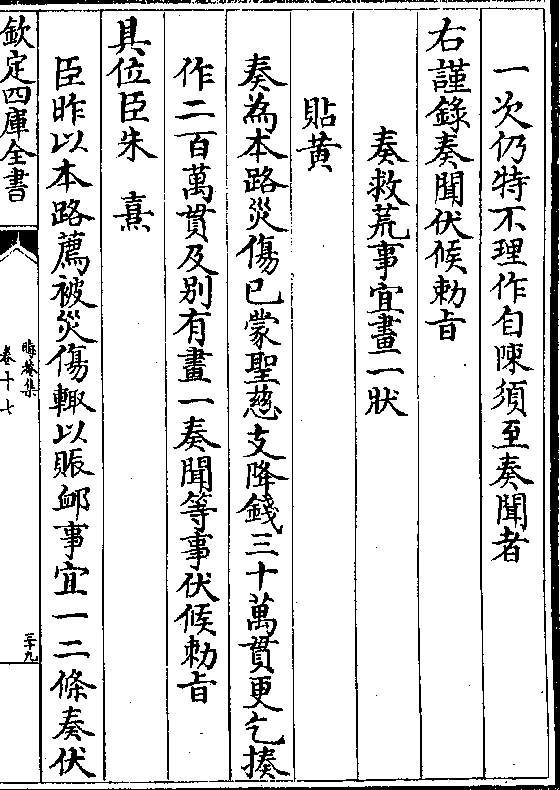 一次仍特不理作自陳須至奏聞者
右謹錄奏聞伏候勅旨
奏救荒事宜畫一狀
貼黃
奏為本路災傷已蒙聖慈支降錢三十萬貫更乞揍
作二百萬貫及別有畫一奏聞等事伏候勅旨
具位臣朱熹
臣昨以本路薦被災傷輙以賑䘏事宜一二條奏伏
欽定四庫全書
晦菴集
卷十七
三十九